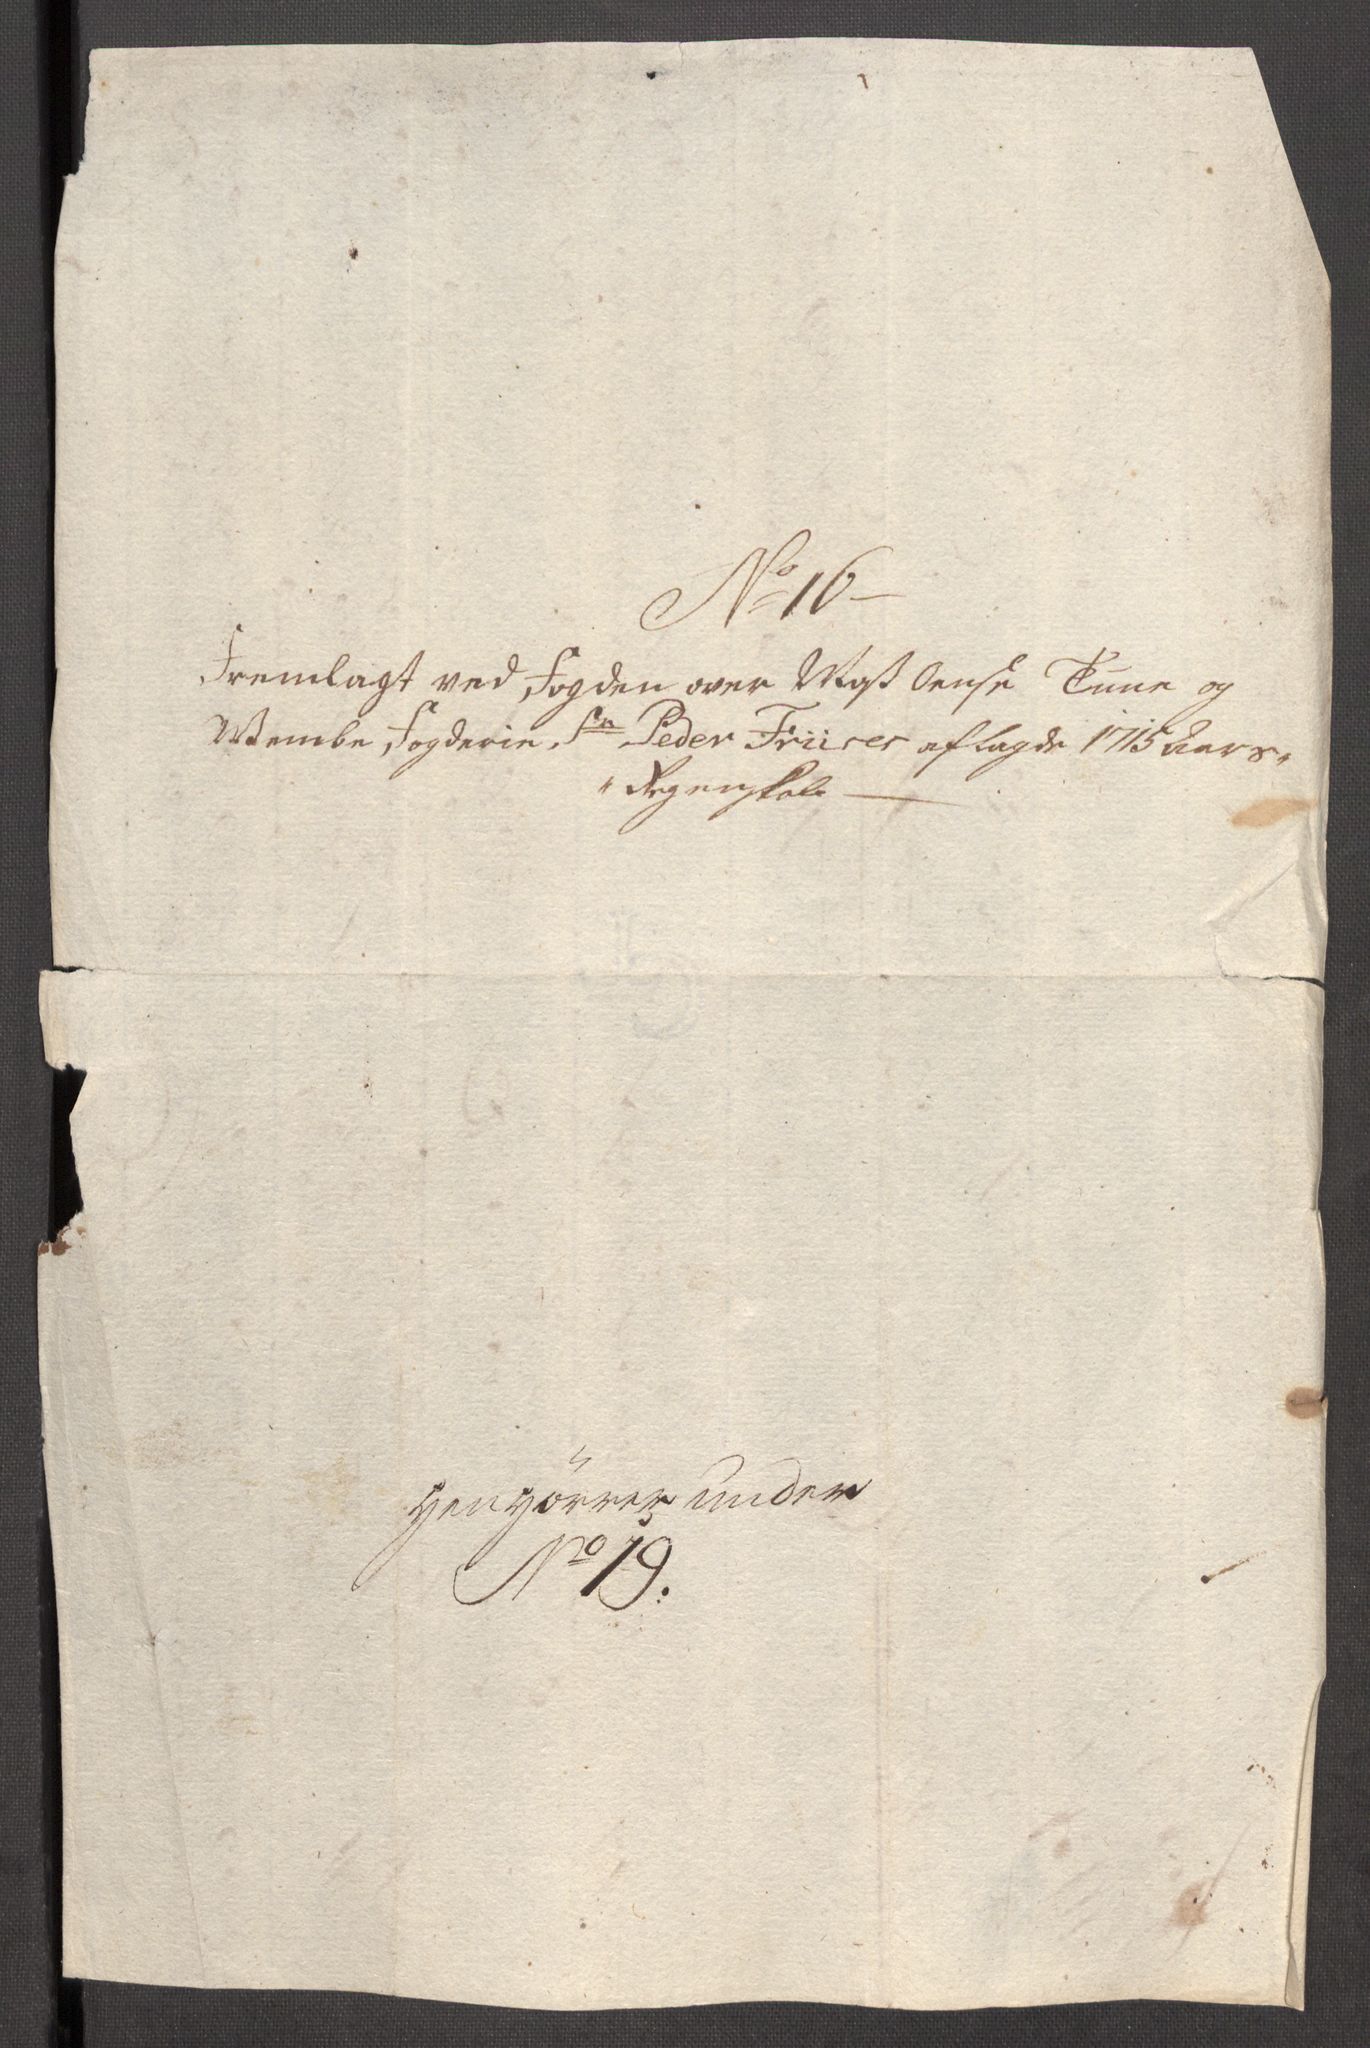 No 16
Fremlagt ved Fogden over Moß Onsøe Tune og
Wembe Fogderie Sr Peder Friises aflagde 1715 Aars
Regenskab
Henhörrer under
No 19.